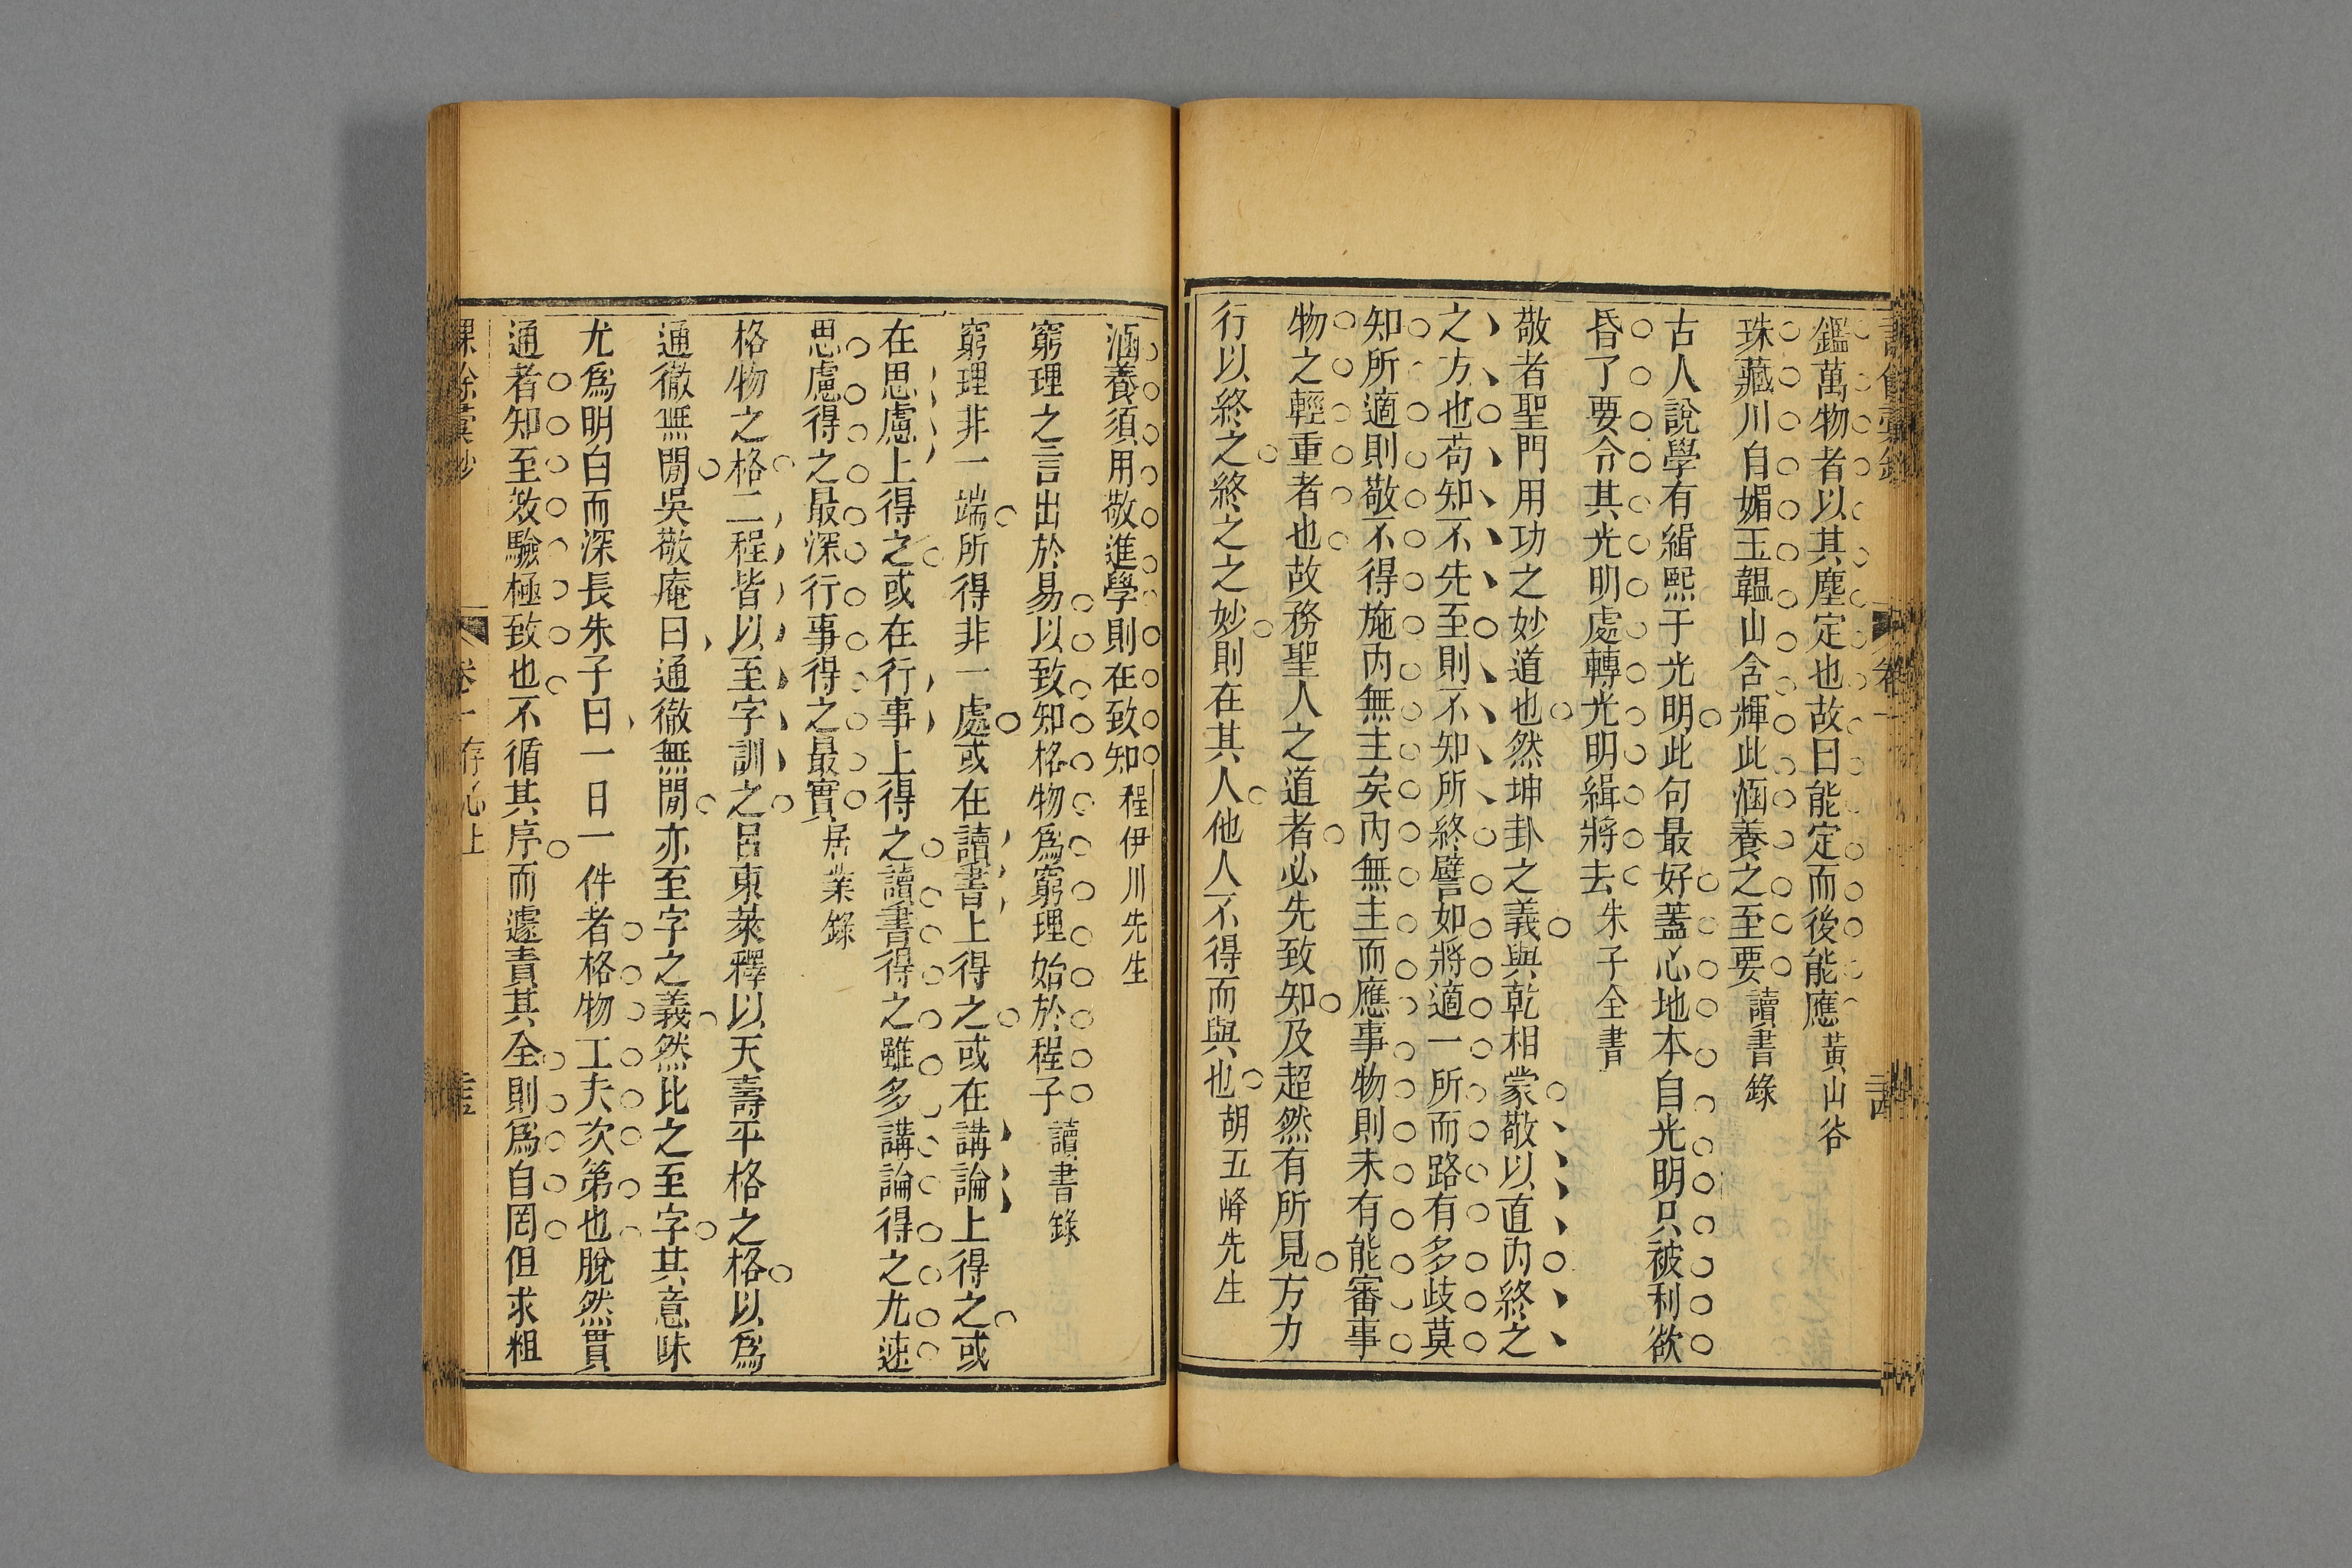 鑑萬物者以其塵定也故曰能定而後能應黃山谷
珠藏川自媚玉韞山含輝此涵養之至要讀書錄
古人說學有緝熙于光明此句最好蓋心地本自光明只被利欲
昏了要令其光明處轉光明緝將去朱子全書
敬者聖門用功之妙道也然坤卦之義與乾相蒙敬以直內終之
之方也苟知不先至則不知所終譬如將適一所而路有多歧莫
知所適則敬不得施內無主矣內無主而應事物則未有能審事
物之輕重者也故務聖人之道者必先致知及超然有所見方力
行以終之終之之妙則在其人他人不得而與也胡五峰先生
涵養須用敬進學則在致知程伊川先生
窮理之言出於易以致知格物為窮理始於程子讀書錄
窮理非一端所得非一處或在讀書上得之或在講論上得之或
在思慮上得之或在行事上得之讀書得之雖多講論得之尤速
思慮得之最深行事得之最實居業錄
格物之格二程皆以至字訓之呂東萊釋以天壽平格之格以為
通徹無閒吳敬庵曰通徹無閒亦至字之義然比之至字其意味
尤為明白而深長朱子曰一日一件者格物工夫次第也脫然貫
通者知至效驗極致也不循其序而遽責其全則為自罔但求粗
課餘彙鈔 卷一 存心上